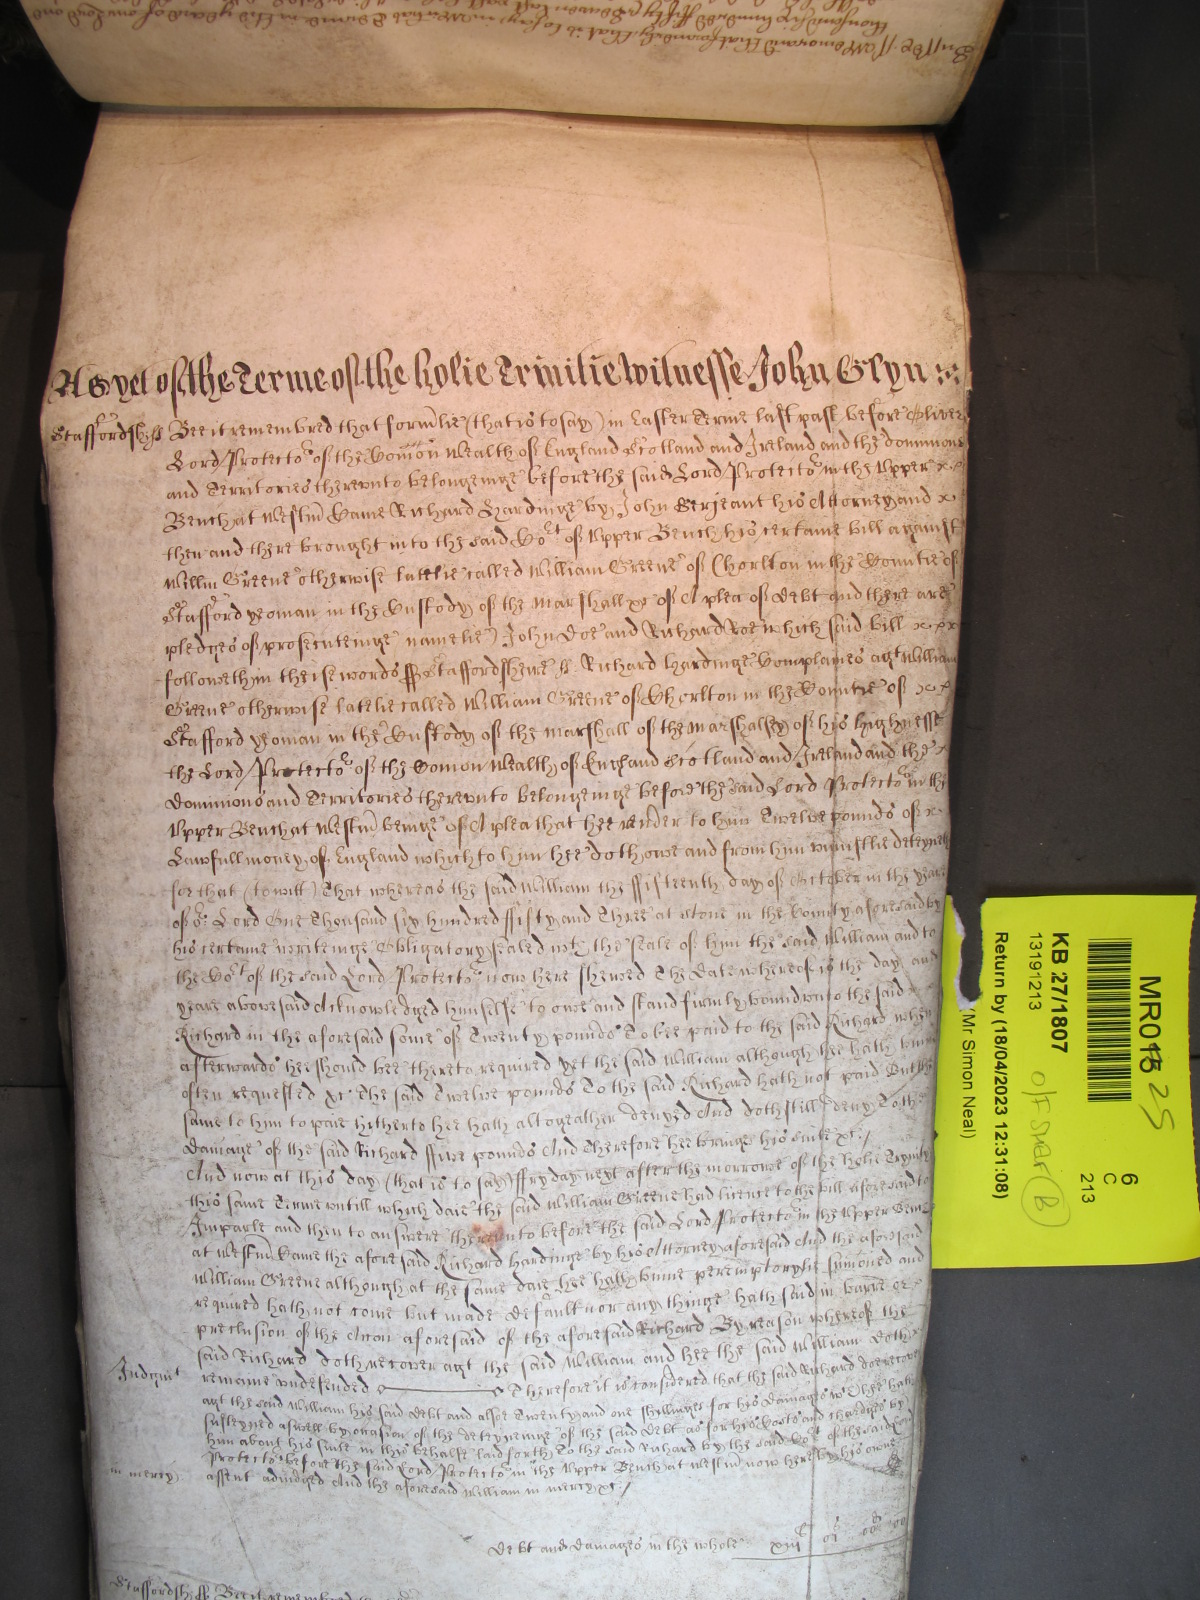 As yet of the Terme of the holie Trinitie Witnesse John Glyn
Staffordsh ss Bee it remembred that formlie (that is to say) in Easter Terme last past before Oliver
Lord Protector of the Comon Wealth of England Scotland and Ireland and the dominions
and Territories thereunto belongeinge before the said Lord Protector in the Upper
Bench at Westm Came Richard Hardinge by John Serjeant his Attorney and
then and there brought into the said Cort of Upper Bench his certaine bill against
Willm Greene otherwise latelie called William Greene of Chorlton in the Countie of
Stafford yeoman in the Custody of the Marshall xc of A plea of debt and there are
pledges of prosecuteinge namelie) John Doe and Richard Roe which said bill
followeth in theise words ss Staffordsheire ss. Richard Hardinge Complaines agt William
Greene otherwise latelie called William Greene of Chorlton in the Countie of
Stafford yeoman in the Custody of the Marshall of the Marshalsey of his highnesse
the Lord Protector of the Comon Wealth of England Scotland and Ireland and the
Dominions and Territories thereunto belongeinge before the said Lord Protector in the
Upper Bench at Westm beinge of A plea that hee render to him Twelve pounds of
Lawfull money of England which to him hee doth owe and from him uniustlie deteyneth
for that (to witt) That whereas the said William the ffifteenth day of October in the yeare
of or Lord One Thousand six hundred ffifty and Three at Stone in the County aforesaid by
his certaine writeinge Obligatory sealed wth the seale of him the said William and to
the Cort of the said Lord Protector now here shewed The Date whereof is the day and
yeare abovesaid Acknowledged himselfe to owe and stand firmly bound unto the said
Richard in the aforesaid some of Twenty pounds To bee paid to the said Richard when
afterwards hee should bee thereto required yet the said William although hee hath binn
often requested xc The said Twelve pounds To the said Richard hath not paid But the
same to him to paie hitherto hee hath altogeather denyed And doth still deny To the
Damage of the said Richard ffive pounds And Therefore hee brings his suite xc./
And now at this day (that is to say) ffryday next after the morrowe of the holie Trynity
this same Terme untill which daie the said William Greene had licence to the bill aforesaid to
Imparle and then to answere thereunto before the said Lord Protector in the Upper Bench
at Westm Came the aforesaid Richard Hardinge by his Attorney aforesaid And the aforesaid
William Greene although at the same daie hee hath binne peremptorylie sumoned and
required hath not come but made default nor any thinge hath said in barre or
preclusion of the Accon aforesaid of the aforesaid Richard By reason whereof the
said Richard doth recover agt the said William and hee the said William Doth
Judgmt remaine undefended Therefore it is considered that the said Richard doe recover
agt the said William his said debt and alsoe Twenty and one shillinges for his Damages wch hee hath
susteyned aswell by occasion of the deteyneinge of the said debt as for his Costs and Chardges by
him about his suite in this behalfe laid forth To the said Richard by the said Cort of the said Lord
Protector before the said Lord Protector in the Upper Bench at Westm now here by his owne
in mercy. assent adiudged And the aforesaid William in mercy xc./
Debt and Damages in the whole xiii 01 00 00
Staffordsh ss Bee it remembred
MR015 25
6
C
213
KB 27/1807
13191213
O/F Smar (B)
Return by (18/04/2023 12:31:08)
(Mr. Simon Neal)